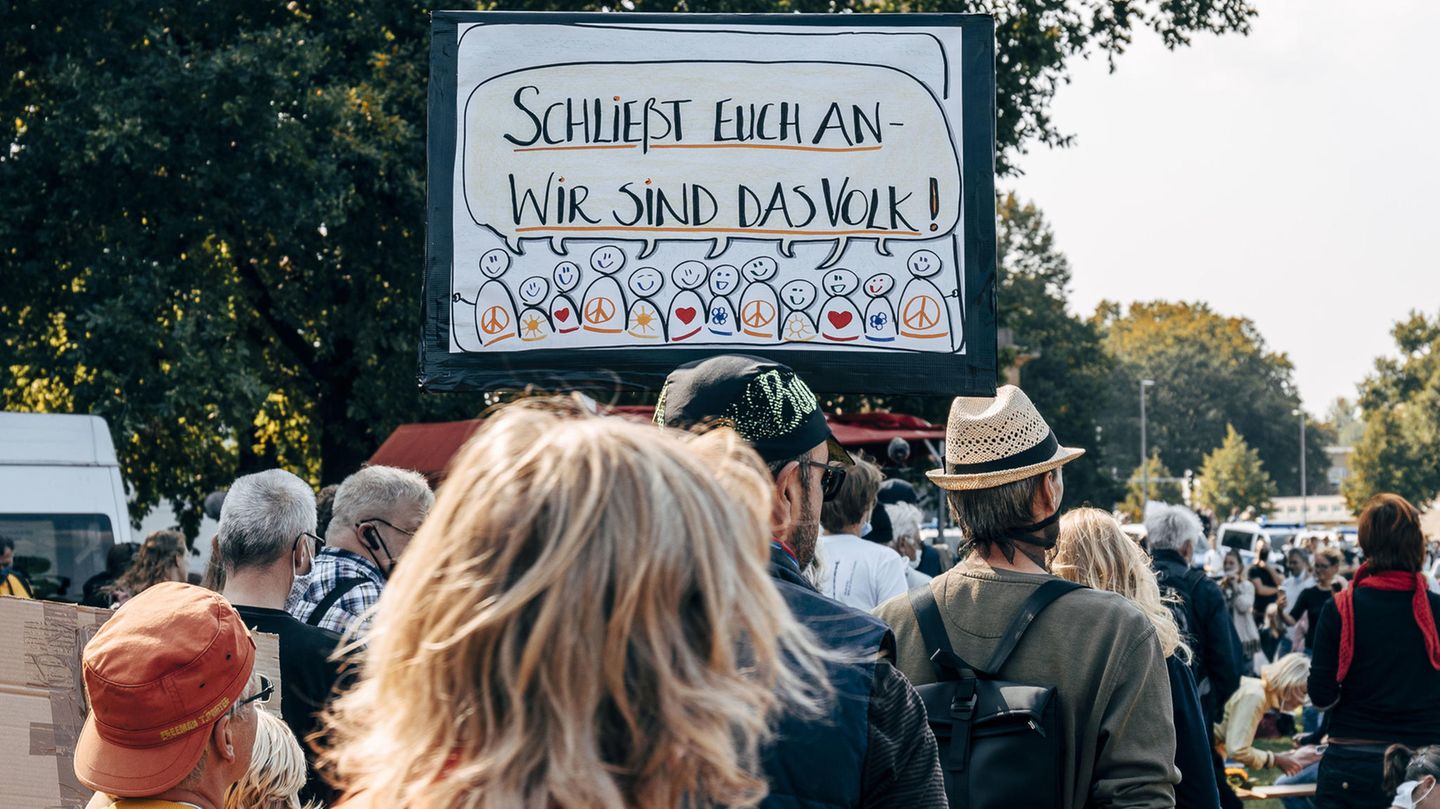 SCHLIEßT EUCH AN-
WIR SIND DAS VOLK!